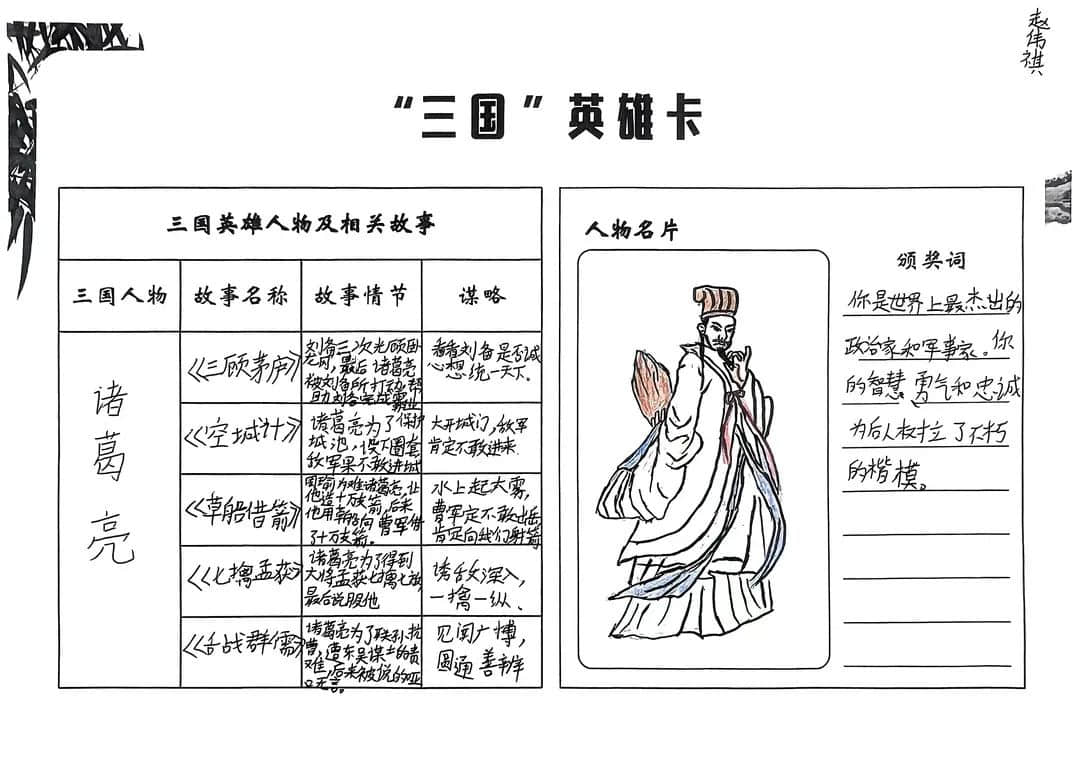 赵伟祺
“三国”英雄卡
三国英雄人物及相关故事
三国人物 故事名称 故事情节 谋略
诸葛亮
《三顾茅庐》
刘备三次光顾卧
龙冈，最后诸葛亮
被刘备所打动，帮
助刘备完成霸业
看看刘备是否诚
心想统一天下。
《空城计》
诸葛亮为了保护
城池，设下圈套
敌军果不敢进城
大开城门，敌军
肯定不敢进来.
《草船借箭》
周瑜为难诸葛亮，让
他造十万支箭，后来
他用草船向曹军借
了十万支箭。
水上起大雾，
曹军定不敢出兵
肯定向我们射箭
《七擒孟获》
诸葛亮为了得到
大将孟获七擒七放
最后说服他
诱敌深入，
一擒一纵、
《舌战群儒》
诸葛亮为了联孙抗
曹，遭东吴谋士的责
难，后来被说的哑
口无言。
见闻广博，
圆通善辩
人物名片
颁奖词
你是世界上最杰出的
政治家和军事家。你
的智慧、勇气和忠诚
为后人树立了不朽
的楷模。